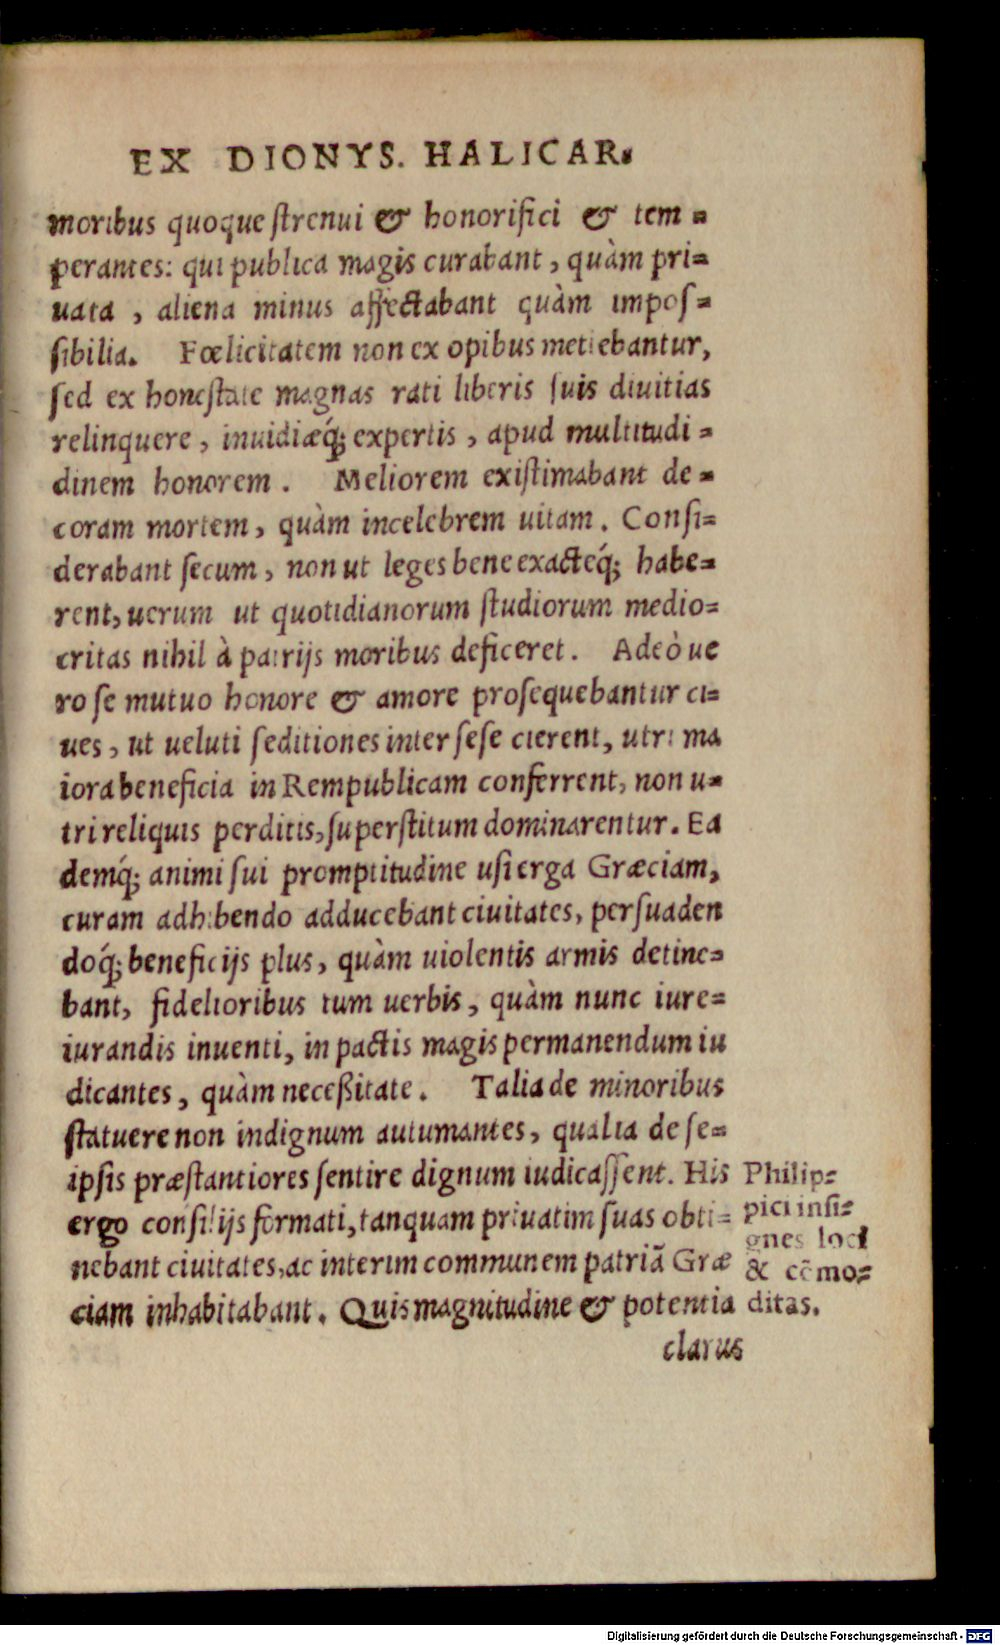 EX DIONYS. HALICAR.
moribus quoque ſtrenui & honorifici & tem=
perantes: qui publica magis curabant, quàm pri=
uata, aliena minus affectabant quàm impoſ=
ſibilia. Fœlicitatem non ex opibus metiebantur,
ſed ex honeſtate magnas rati liberis ſuis diuitias
relinquere, inuidiæq́; expertis, apud multitudi=
dinem honorem. Meliorem exiſtimabant de=
coram mortem, quàm incelebrem uitam. Conſi=
derabant ſecum, non ut leges bene exacteq́; habe=
rent, uerum ut quotidianorum ſtudiorum medio=
critas nihil à patrijs moribus deficeret. Adeò ue
ro ſe mutuo honore & amore proſequebantur ci=
ues, ut ueluti ſeditiones inter ſeſe cierent, utri ma
iora beneficia in Rempublicam conferrent, non u=
tri reliquis perditis, ſuperſtitum dominarentur. Ea
demq́; animi ſui promptitudine uſi erga Græciam,
curam adhibendo adducebant ciuitates, perſuaden
doq́; beneficijs plus, quàm uiolentis armis detine=
bant, fidelioribus tum uerbis, quàm nunc iure=
iurandis inuenti, in pactis magis permanendum iu
dicantes, quàm neceßitate. Talia de minoribus
ſtatuere non indignum autumantes, qualia de ſe=
ipſis præſtantiores ſentire dignum iudicaſſent. His
ergo conſilijs formati, tanquam priuatim ſuas obti=
nebant ciuitates, ac interim communem patriã Græ
ciam inhabitabant. Quis magnitudine & potentia
clarus
Philip=
pici inſi=
gnes loci
& cõmo=
ditas.
Digitalisierung gefördert durch die Deutsche Forschungsgemeinschaft - DFG